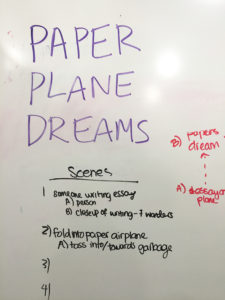 PAPER
PLANE
DREAMS
Scenes
1 someone writing essay
A) person
B) closeup of writing - 7 wonders
2) fold into paper airplane
A) toss into/towards garbage
3)
4)
B) papers
dream
A)
plane